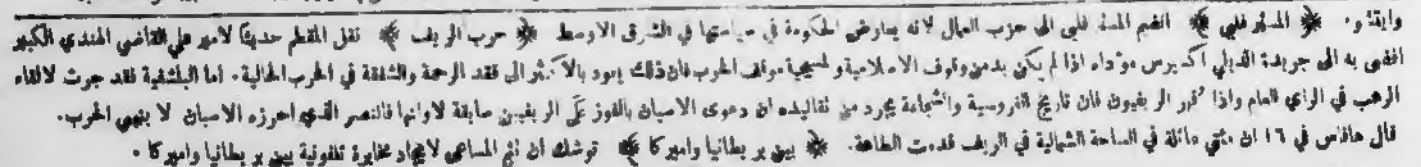 وايقند و. ﴿ المستر فلبي ﴾ انضم المستر فلبي الى حزب العمال لانه يعارض الحكومة في سياستها في الشرق الاوسط ﴿ حرب الريف ﴾ نقل المقطم حديثًا لامير علي القاضي الهندي الكبير
افضى به الى جريدة الديلي اكسبرس مؤداه اذا لم يكن بد من وقوف الاسلامية والمسيحية موقف الحرب فان ذلك يعود بالاكثر الى فقد الرحمة والشفقة في الحرب الحالية. اما البلشفية فقد جرت لالقاء
الرعب في الراي العام واذا قهر الريفيون فان تاريخ الفروسية والشجاعة يجرد من تقاليده ان دعوى الاسبان بالفوز على الريفيين سابقة لاوانها فالنصر الذي احرزه الاسبان لا ينهي الحرب.
قال هافاس في ١٦ ان مئتي عائلة في الساحة الشمالية في الريف قدمت الطاعة. ﴿ بين بريطانيا واميركا ﴾ توشك ان تتم المساعي لايجاد مخابرة تلفونية بين بريطانيا واميركا.